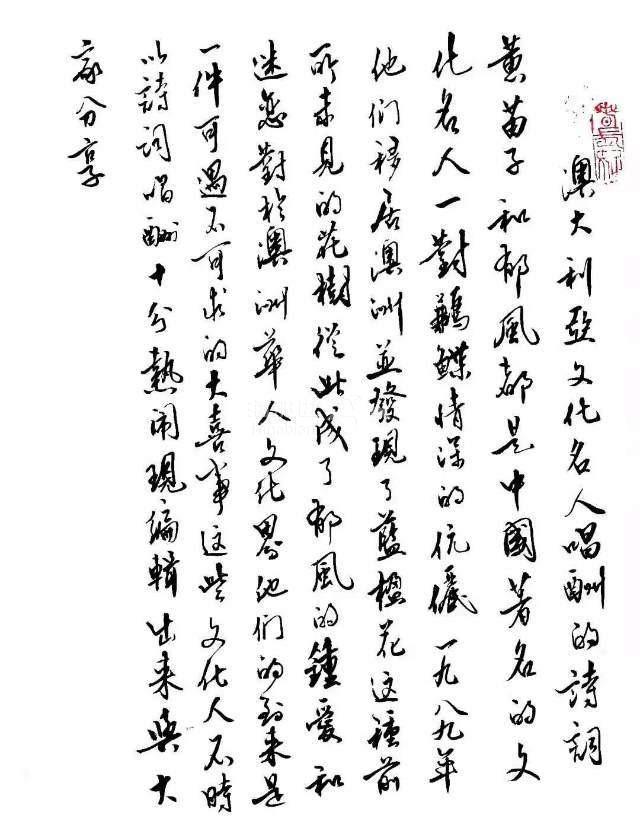 澳大利亞文化名人唱酬的詩詞
黄苗子和郁風都是中國著名的文
化名人一對鶼鰈情深的伉儷一九八九年
他们移居澳洲並發現了藍楹花这種前
所未見的花樹從此成了郁風的鍾愛和
迷戀對於澳洲華人文化界他们的到来是
一件可遇不可求的大喜事这些文化人不時
以詩詞唱酬十分熱闹現編輯出来與大
家分享